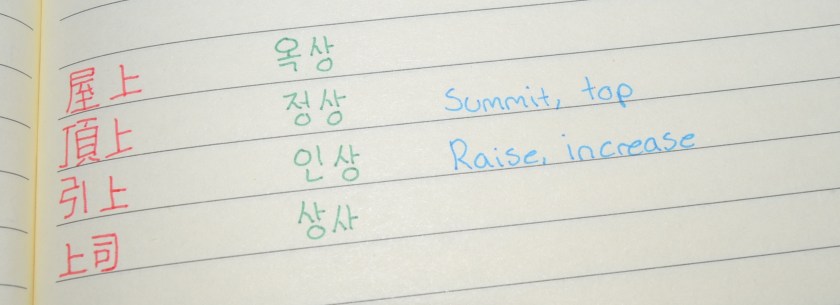 屋上 옥상
頂上 정상 Summit, top
引上 인상 Raise, increase
上司 상사